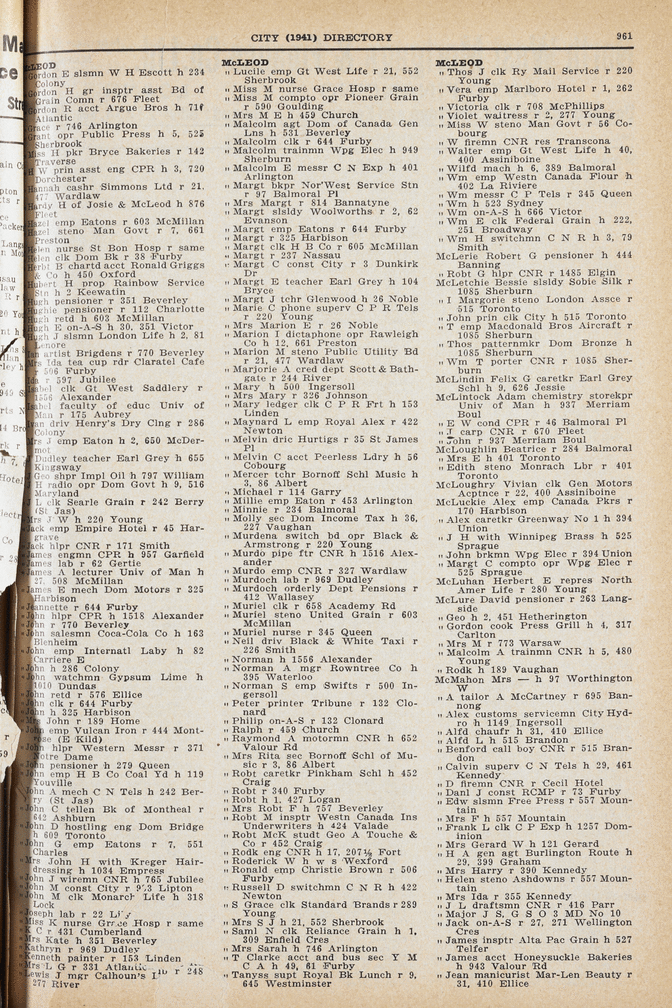 CITY (1941) DIRECTORY
961
McLEOD
Gordon E slsmn W H Escott h 234
Colony
Gordon H gr insptr asst Bd of
Grain Comn r 676 Fleet
Gordon R acct Argue Bros h
Atlantic
Grace r 746 Arlington
opr Public Press h 5, 525
Sherbrook
Miss H pkr Bryce Bakeries r 142
Traverse
H W prin asst eng CPR h 3, 720
Dorchester
Hannah cashr Simmons Ltd r 21,
477 Wardlaw
Hardy H of Josie & McLeod h 876
Fleet
Hazel emp Eatons r 603 McMillan
Hazel steno Man Govt r 7, 661
Preston
Helen nurse St Bon Hosp r same
Helen clk Dom Bk r 38 Furby
Herbt B chartd acct Ronald Griggs
& Co h 450 Oxford
Hubert H prop Rainbow Service
Stn h 2 Keewatin
Hugh pensioner r 351 Beverley
Hughie pensioner r 112 Charlotte
Hugh retd h 603 McMillan
Hugh E on-A-S h 30, 351 Victor
Hugh J slsmn London Life h 2, 81
Lenore
Ian artist Brigdens r 770 Beverley
Mrs Ida tea cup rdr Claratel Cafe
r 506 Furby
Ida r 597 Jubilee
Isabel clk Gt West Saddlery r
1556 Alexander
Isabel faculty of educ Univ of
Man r 175 Aubrey
Ivan driv Henry's Dry Clng r 286
Colony
Mrs J emp Eaton h 2, 650 McDer-
mot
J Dudley teacher Earl Grey h 655
Kingsway
J Geo shpr Impl Oil h 797 William
J H radio opr Dom Govt h 9, 516
Maryland
J L clk Searle Grain r 242 Berry
(St Jas)
Mrs J W h 220 Young
Jack emp Empire Hotel r 45 Har-
grave
Jack hlpr CNR r 171 Smith
James engmn CPR h 957 Garfield
James lab r 62 Gertie
James A lecturer Univ of Man h
27, 508 McMillan
James E mech Dom Motors r 325
Harbison
Jeannette r 644 Furby
John hlpr CPR h 1518 Alexander
John r 770 Beverley
John salesmn Coca-Cola Co h 163
Blenheim
John emp Internatl Laby h 82
Carriere E
John h 286 Colony
John watchmn Gypsum Lime h
1010 Dundas
John retd r 576 Ellice
John clk r 644 Furby
John h 325 Harbison
John r 189 Home
John emp Vulcan Iron r 444 Mont-
rose (E Kild)
John hlpr Western Messr r 371
Notre Dame
John pensioner h 279 Queen
John emp H B Co Coal Yd h 119
Youville
John A mech C N Tels h 242 Ber-
ry (St Jas)
John C tellen Bk of Montheal r
642 Ashburn
John D hostling eng Dom Bridge
h 609 Toronto
John G emp Eatons r 7, 551
Charles
Mrs John H with Kreger Hair-
dressing h 1034 Empress
John J wiremn CNR h 765 Jubilee
John M const City r Lipton
John M clk Monarch Life h 318
Lock
Joseph lab r 22
Miss K nurse Grace Hosp r same
K C r 431 Cumberland
Mrs Kate h 351 Beverley
Kathryn r 969 Dudley
Kenneth painter r 153 Linden
Mrs L G r 331 Atlantic
Lewis J mgr Calhoun's r 248
277 River
McLEOD
„ Lucile emp Gt West Life r 21, 552
Sherbrook
„ Miss M nurse Grace Hosp r same
„ Miss M compto opr Pioneer Grain
r 590 Goulding
„ Mrs M E h 459 Church
„ Malcolm agt Dom of Canada Gen
Lns h 531 Beverley
„ Malcolm clk r 644 Furby
„ Malcolm trainmn Wpg Elec h 949
Sherburn
„ Malcolm E messr C N Exp h 401
Arlington
„ Margt bkpr Nor'West Service Stn
r 97 Balmoral Pl
„ Mrs Margt r 814 Bannatyne
„ Margt slsldy Woolworths r 2, 62
Evanson
„ Margt emp Eatons r 644 Furby
„ Margt r 325 Harbison
„ Margt clk H B Co r 605 McMillan
„ Margt r 237 Nassau
„ Margt C const City r 3 Dunkirk
Dr
„ Margt E teacher Earl Grey h 104
Bryce
„ Margt J tchr Glenwood h 26 Noble
„ Marie C phone superv C P R Tels
r 220 Young
„ Mrs Marion E r 26 Noble
„ Marion I dictaphone opr Rawleigh
Co h 12, 661 Preston
„ Marion M steno Public Utility Bd
r 21, 477 Wardlaw
„ Marjorie A cred dept Scott & Bath-
gate r 244 River
„ Mary h 500 Ingersoll
„ Mrs Mary r 326 Johnson
„ Mary ledger clk C P R Frt h 153
Linden
„ Maynard L emp Royal Alex r 422
Newton
„ Melvin dric Hurtigs r 35 St James
Pl
„ Melvin C acct Peerless Ldry h 56
Cobourg
„ Mercer tchr Bornoff Schl Music h
3, 86 Albert
„ Michael r 114 Garry
„ Millie emp Eaton r 453 Arlington
„ Minnie r 234 Balmoral
„ Molly sec Dom Income Tax h 36,
227 Vaughan
„ Murdena switch bd opr Black &
Armstrong r 220 Young
„ Murdo pipe ftr CNR h 1516 Alex-
ander
„ Murdo emp CNR r 327 Wardlaw
„ Murdoch lab r 969 Dudley
„ Murdoch orderly Dept Pensions r
412 Wallasey
„ Muriel clk r 658 Academy Rd
„ Muriel steno United Grain r 603
McMillan
„ Muriel nurse r 345 Queen
„ Neil driv Black & White Taxi r
226 Smith
„ Norman h 1556 Alexander
„ Norman A mgr Rowntree Co h
395 Waterloo
„ Norman S emp Swifts r 500 In-
gersoll
„ Peter printer Tribune r 132 Clo-
nard
„ Philip on-A-S r 132 Clonard
„ Ralph r 459 Church
„ Raymond A motormn CNR h 652
Valour Rd
„ Mrs Rita sec Bornoff Schl of Mu-
sic r 3, 86 Albert
„ Robt caretkr Pinkham Schl h 452
Craig
„ Robt r 340 Furby
„ Robt h 1, 427 Logan
„ Mrs Robt F h 757 Beverley
„ Robt M insptr Westn Canada Ins
Underwriters h 424 Valade
„ Robt McK studt Geo A Touche &
Co r 452 Craig
„ Rodk eng CNR h 17, 207½ Fort
„ Roderick W h w s Wexford
„ Ronald emp Christie Brown r 506
Furby
„ Russell D switchmn C N R h 422
Newton
„ S Grace clk Standard Brands r 289
Young
„ Mrs S J h 21, 552 Sherbrook
„ Saml N clk Reliance Grain h 1,
309 Enfield Cres
„ Mrs Sarah h 746 Arlington
„ T Clarke acct and bus sec Y M
C A h 49, 61 Furby
„ Tanyss supt Royal Bk Lunch r 9,
645 Westminster
McLEOD
„ Thos J clk Ry Mail Service r 220
Young
„ Vera emp Marlboro Hotel r 1, 262
Furby
„ Victoria clk r 708 McPhillips
„ Violet waitress r 2, 277 Young
„ Miss W steno Man Govt r 56 Co-
bourg
„ W firemn CNR res Transcona
„ Walter emp Gt West Life h 40,
400 Assiniboine
„ Wilfd mach h 6, 389 Balmoral
„ Wm emp Westn Canada Flour h
402 La Riviere
„ Wm messr C P Tels r 345 Queen
„ Wm h 523 Sydney
„ Wm on-A-S h 666 Victor
„ Wm E clk Federal Grain h 222,
251 Broadway
„ Wm H switchmn C N R h 3, 79
Smith
McLerie Robert G pensioner h 444
Banning
„ Robt G hlpr CNR r 1485 Elgin
McLetchie Bessie slsldy Sobie Silk r
1085 Sherburn
„ I Margorie steno London Assce r
515 Toronto
„ John prin clk City h 515 Toronto
„ T emp Macdonald Bros Aircraft r
1085 Sherburn
„ Thos patternmkr Dom Bronze h
1085 Sherburn
„ Wm T porter CNR r 1085 Sher-
burn
McLindin Felix G caretkr Earl Grey
Schl h 9, 626 Jessie
McLintock Adam chemistry storekpr
Univ of Man h 937 Merriam
Boul
„ E W cond CPR r 46 Balmoral Pl
„ J carp CNR r 670 Fleet
„ John r 937 Merriam Boul
McLoughlin Beatrice r 284 Balmoral
„ Mrs E h 401 Toronto
„ Edith steno Monrach Lbr r 401
Toronto
McLoughry Vivian clk Gen Motors
Acptnce r 22, 400 Assiniboine
McLuckie Alex emp Canada Pkrs r
170 Harbison
„ Alex caretkr Greenway No 1 h 394
Union
„ J H with Winnipeg Brass h 525
Sprague
„ John brkmn Wpg Elec r 394 Union
„ Margt C compto opr Wpg Elec r
525 Sprague
McLuhan Herbert E repres North
Amer Life r 280 Young
McLure David pensioner r 263 Lang-
side
„ Geo h 2, 451 Hetherington
„ Gordon cook Press Grill h 4, 317
Carlton
„ Mrs M r 773 Warsaw
„ Malcolm A trainmn CNR h 5, 480
Young
„ Rodk h 189 Vaughan
McMahon Mrs — h 97 Worthington
W
„ A tailor A McCartney r 695 Ban-
nong
„ Alex customs servicemn City Hyd-
ro h 1149 Ingersoll
„ Alfd chaufr h 31, 410 Ellice
„ Alfd L h 515 Brandon
„ Benford call boy CNR r 515 Bran-
don
„ Calvin superv C N Tels h 29, 461
Kennedy
„ D firemn CNR r Cecil Hotel
„ Danl J const RCMP r 73 Furby
„ Edw slsmn Free Press r 557 Moun-
tain
„ Mrs F h 557 Mountain
„ Frank L clk C P Exp h 1257 Dom-
inion
„ Mrs Gerard W h 121 Gerard
„ H A gen agt Burlington Route h
29, 399 Graham
„ Mrs Harry r 390 Kennedy
„ Helen steno Ashdowns r 557 Moun-
tain
„ Mrs Ida r 355 Kennedy
„ J L draftsmn CNR r 416 Parr
„ Major J S, G S O 3 MD No 10
„ Jack on-A-S r 27, 271 Wellington
Cres
„ James insptr Alta Pac Grain h 527
Telfer
„ James acct Honeysuckle Bakeries
h 943 Valour Rd
„ Jean manicurist Mar-Len Beauty r
31, 410 Ellice